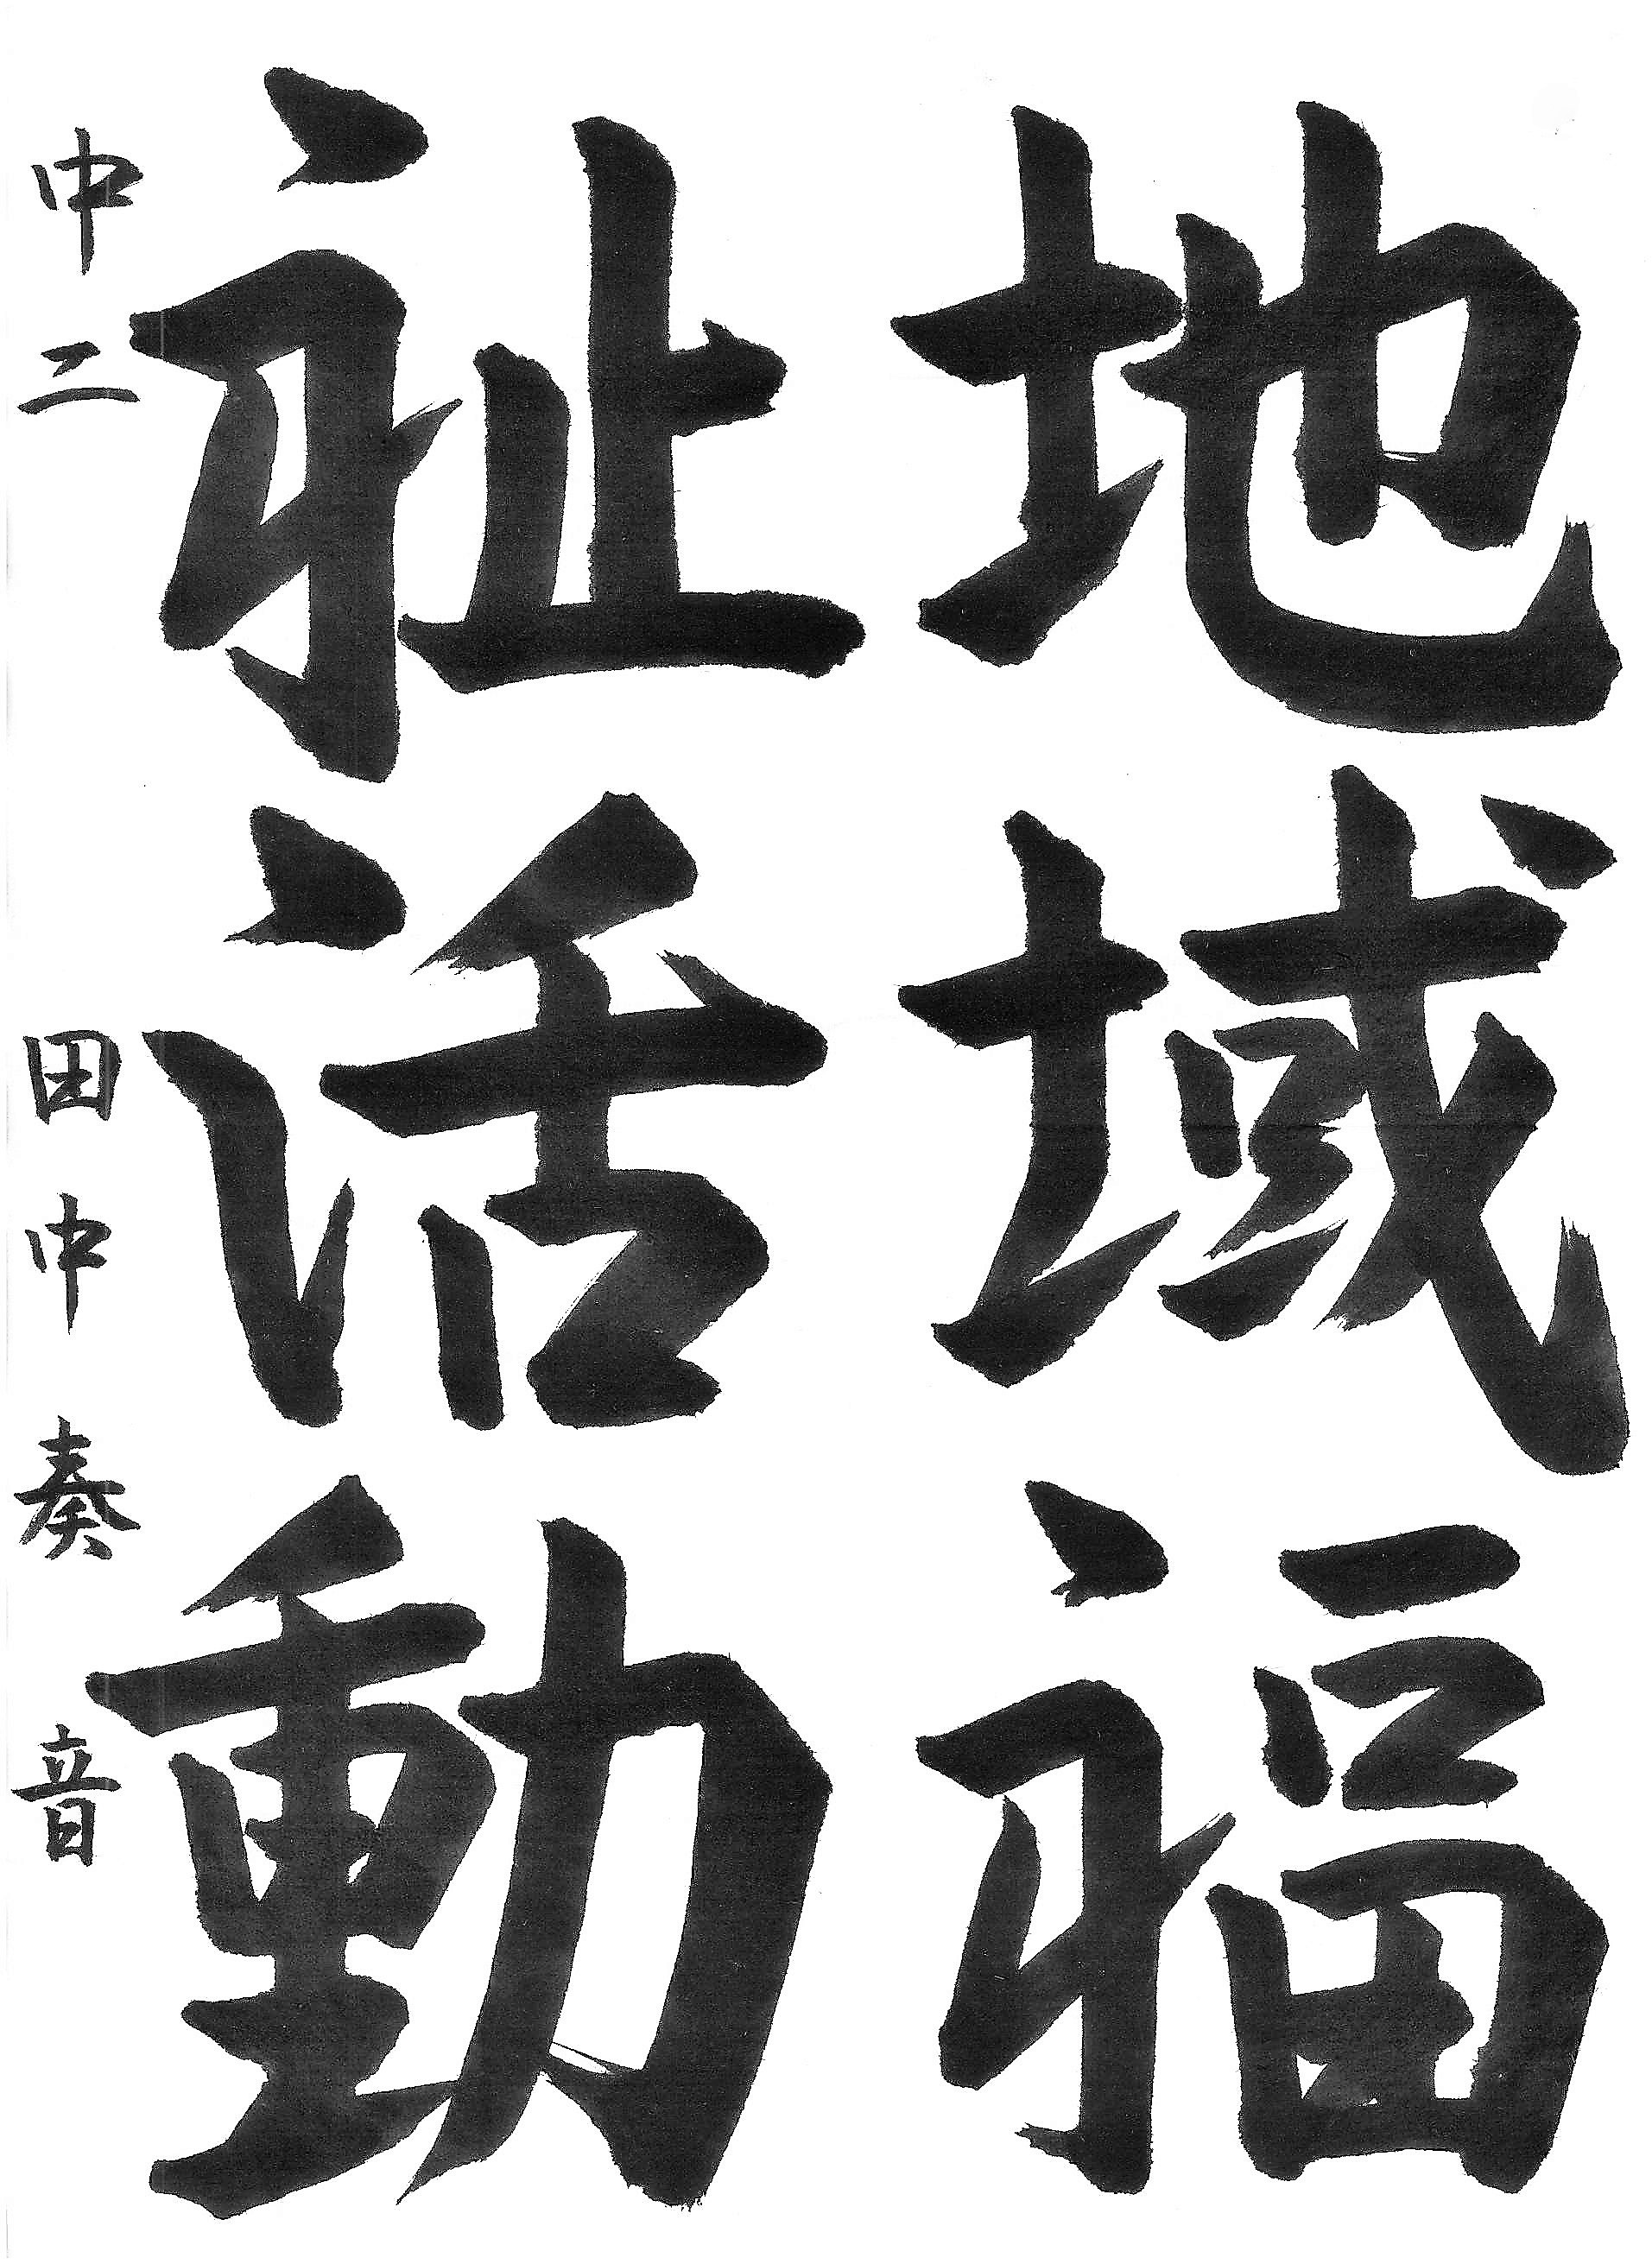 地域福
祉活動
中二 田中奏音